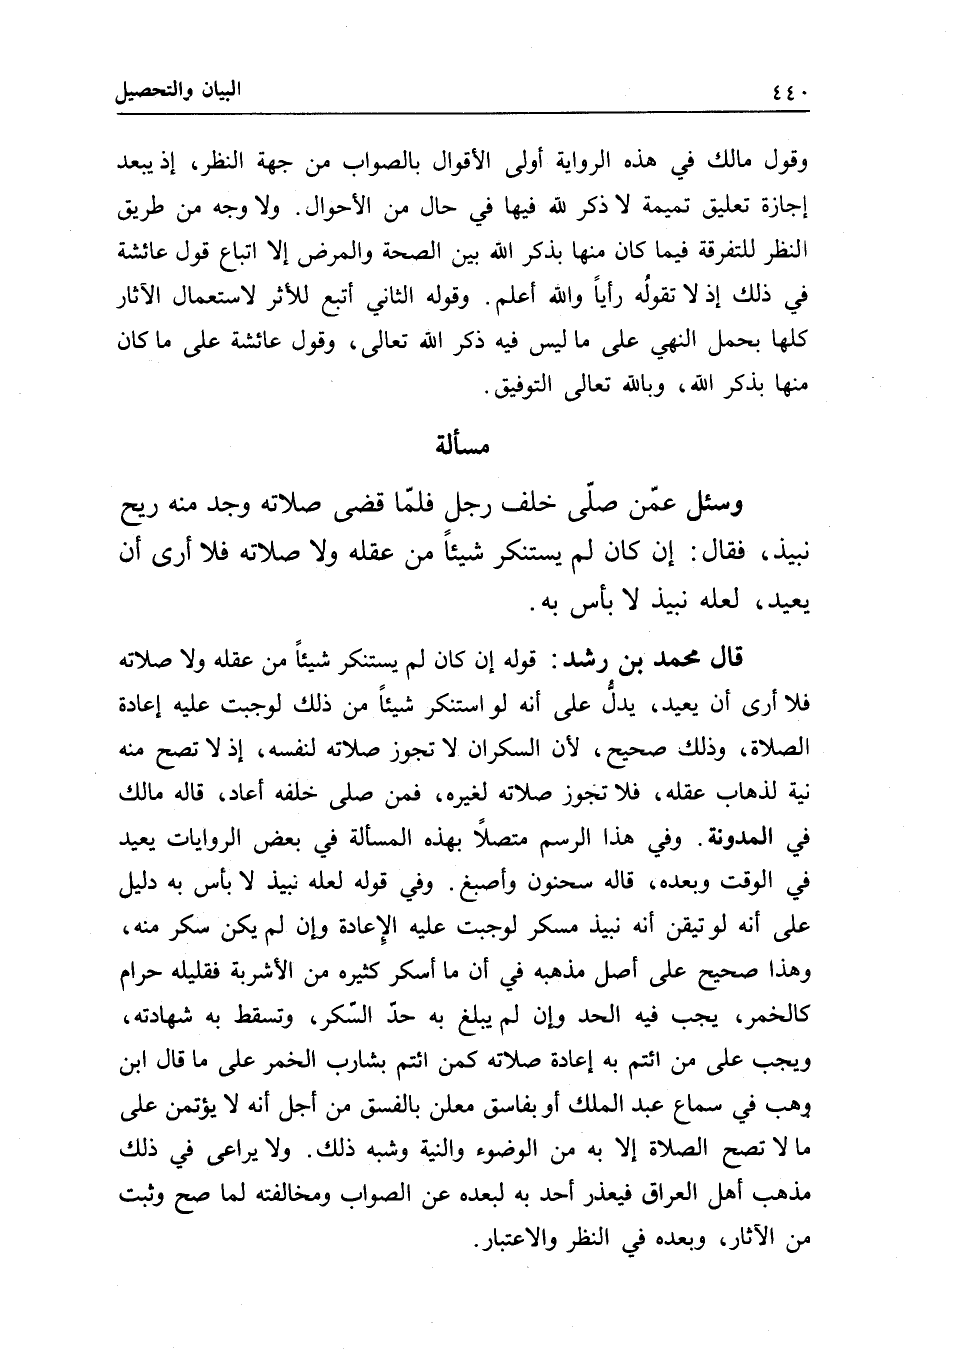 ٤٤٠ البيان والتحصيل
وقول مالك في هذه الرواية أولى الأقوال بالصواب من جهة النظر، إذ يبعد
إجازة تعليق تميمة لا ذكر لله فيها في حال من الأحوال. ولا وجه من طريق
النظر للتفرقة فيما كان منها بذكر الله بين الصحة والمرض إلا اتباع قول عائشة
في ذلك إذ لا تقولُه رأياً والله أعلم. وقوله الثاني أتبع للأثر لاستعمال الآثار
كلها بحمل النهي على ما ليس فيه ذكر الله تعالى، وقول عائشة على ما كان
منها بذكر الله، وبالله تعالى التوفيق.
مسألة
وسئل عمّن صلّى خلف رجل فلمّا قضى صلاته وجد منه ريح
نبيذ، فقال: إن كان لم يستنكر شيئاً من عقله ولا صلاته فلا أرى أن
يعيد، لعله نبيذ لا بأس به.
قال محمد بن رشد: قوله إن كان لم يستنكر شيئاً من عقله ولا صلاته
فلا أرى أن يعيد، يدلُّ على أنه لو استنكر شيئاً من ذلك لوجبت عليه إعادة
الصلاة، وذلك صحيح، لأن السكران لا تجوز صلاته لنفسه، إذ لا تصح منه
نية لذهاب عقله، فلا تجوز صلاته لغيره، فمن صلى خلفه أعاد، قاله مالك
في المدونة. وفي هذا الرسم متصلاً بهذه المسألة في بعض الروايات يعيد
في الوقت وبعده، قاله سحنون وأصبغ. وفي قوله لعله نبيذ لا بأس به دليل
على أنه لو تيقن أنه نبيذ مسكر لوجبت عليه الإعادة وإن لم يكن سكر منه،
وهذا صحيح على أصل مذهبه في أن ما أسكر كثيره من الأشربة فقليله حرام
كالخمر، يجب فيه الحد وإن لم يبلغ به حدّ السّكر، وتسقط به شهادته،
ويجب على من ائتم به إعادة صلاته كمن ائتم بشارب الخمر على ما قال ابن
وهب في سماع عبد الملك أو بفاسق معلن بالفسق من أجل أنه لا يؤتمن على
ما لا تصح الصلاة إلا به من الوضوء والنية وشبه ذلك. ولا يراعى في ذلك
مذهب أهل العراق فيعذر أحد به لبعده عن الصواب ومخالفته لما صح وثبت
من الآثار، وبعده في النظر والاعتبار.